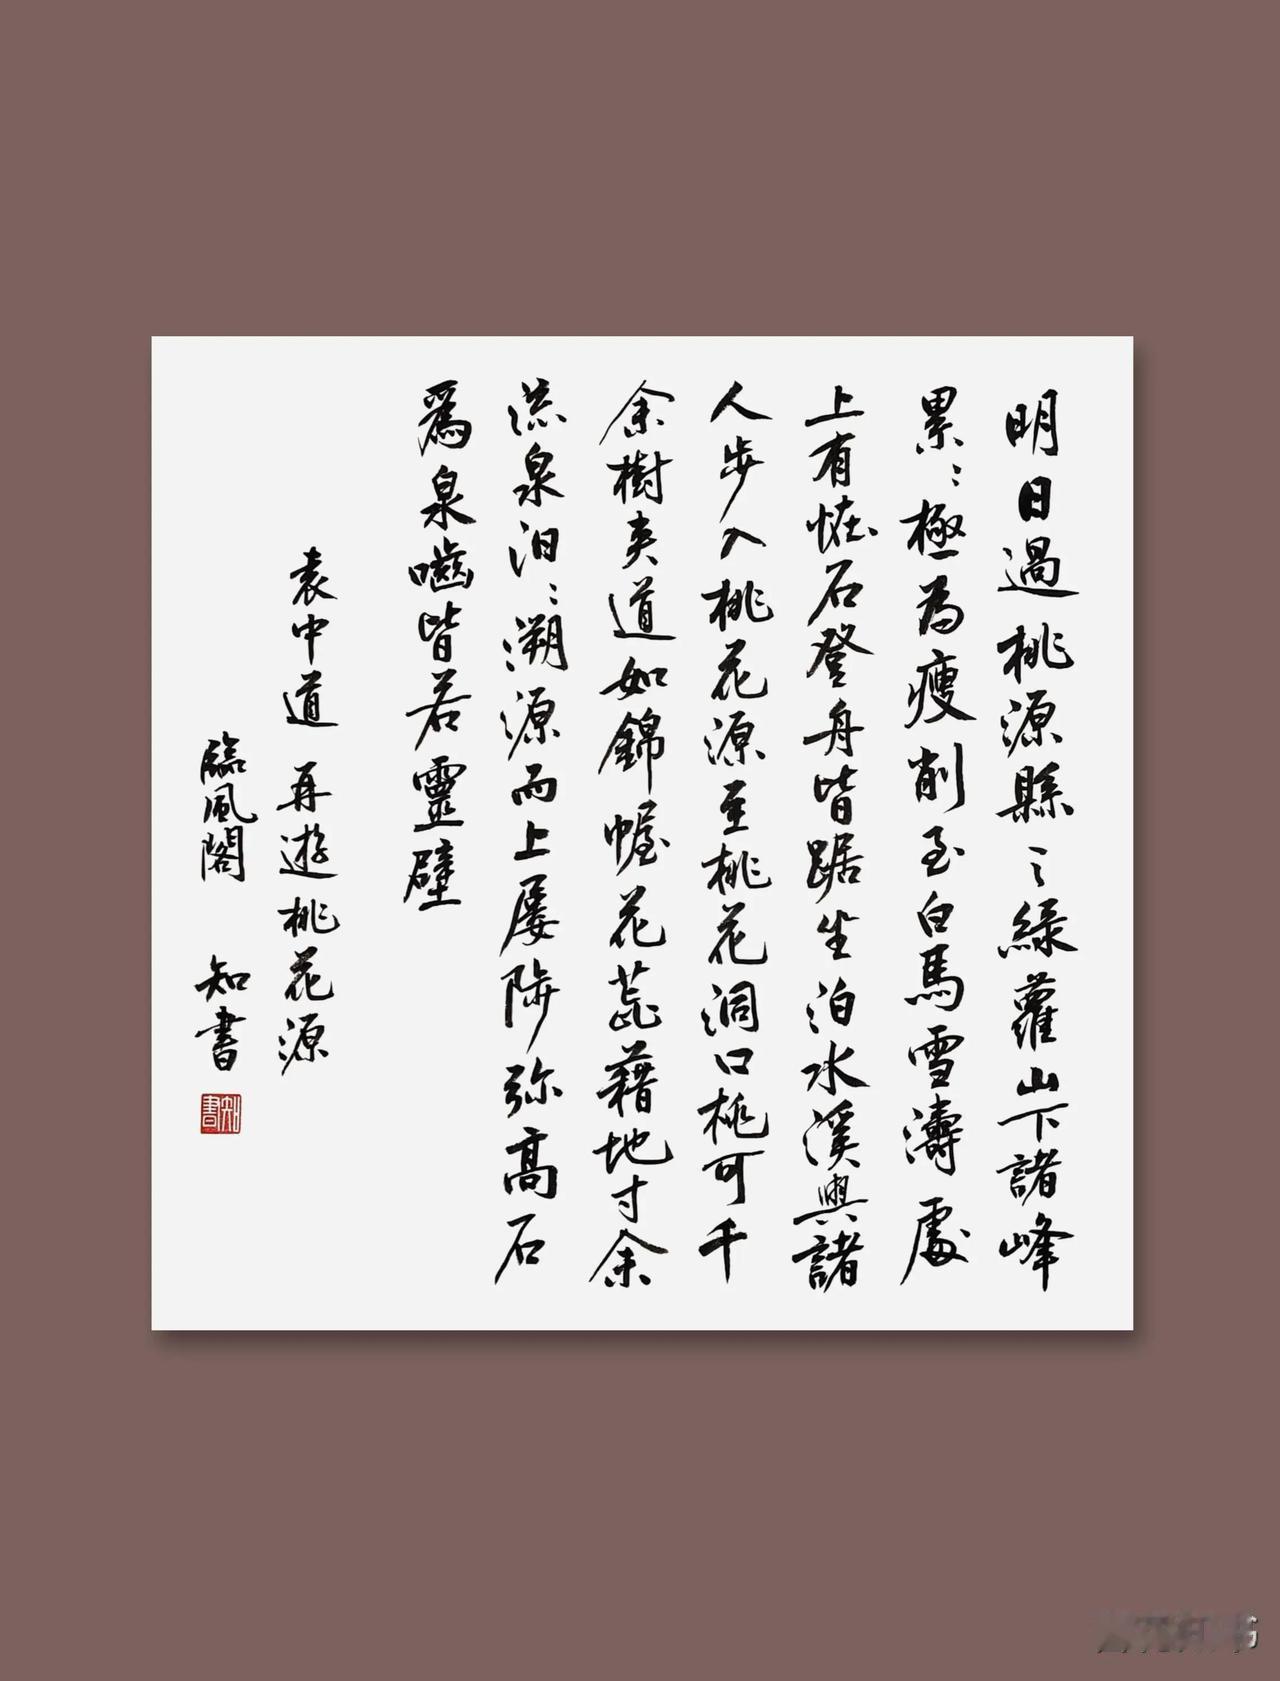 明日過桃源縣之綠蘿山下諸峰
累〻極為瘦削至白馬雪濤處
上有怪石登舟皆踞坐泊水溪與諸
人步入桃花源至桃花洞口桃可千
余樹夾道如錦幄花蕊藉地寸余
流泉汩〻溯源而上屡陟弥高石
爲泉嚙皆若靈壁
袁中道 再遊桃花源
臨風閣 知書
知書